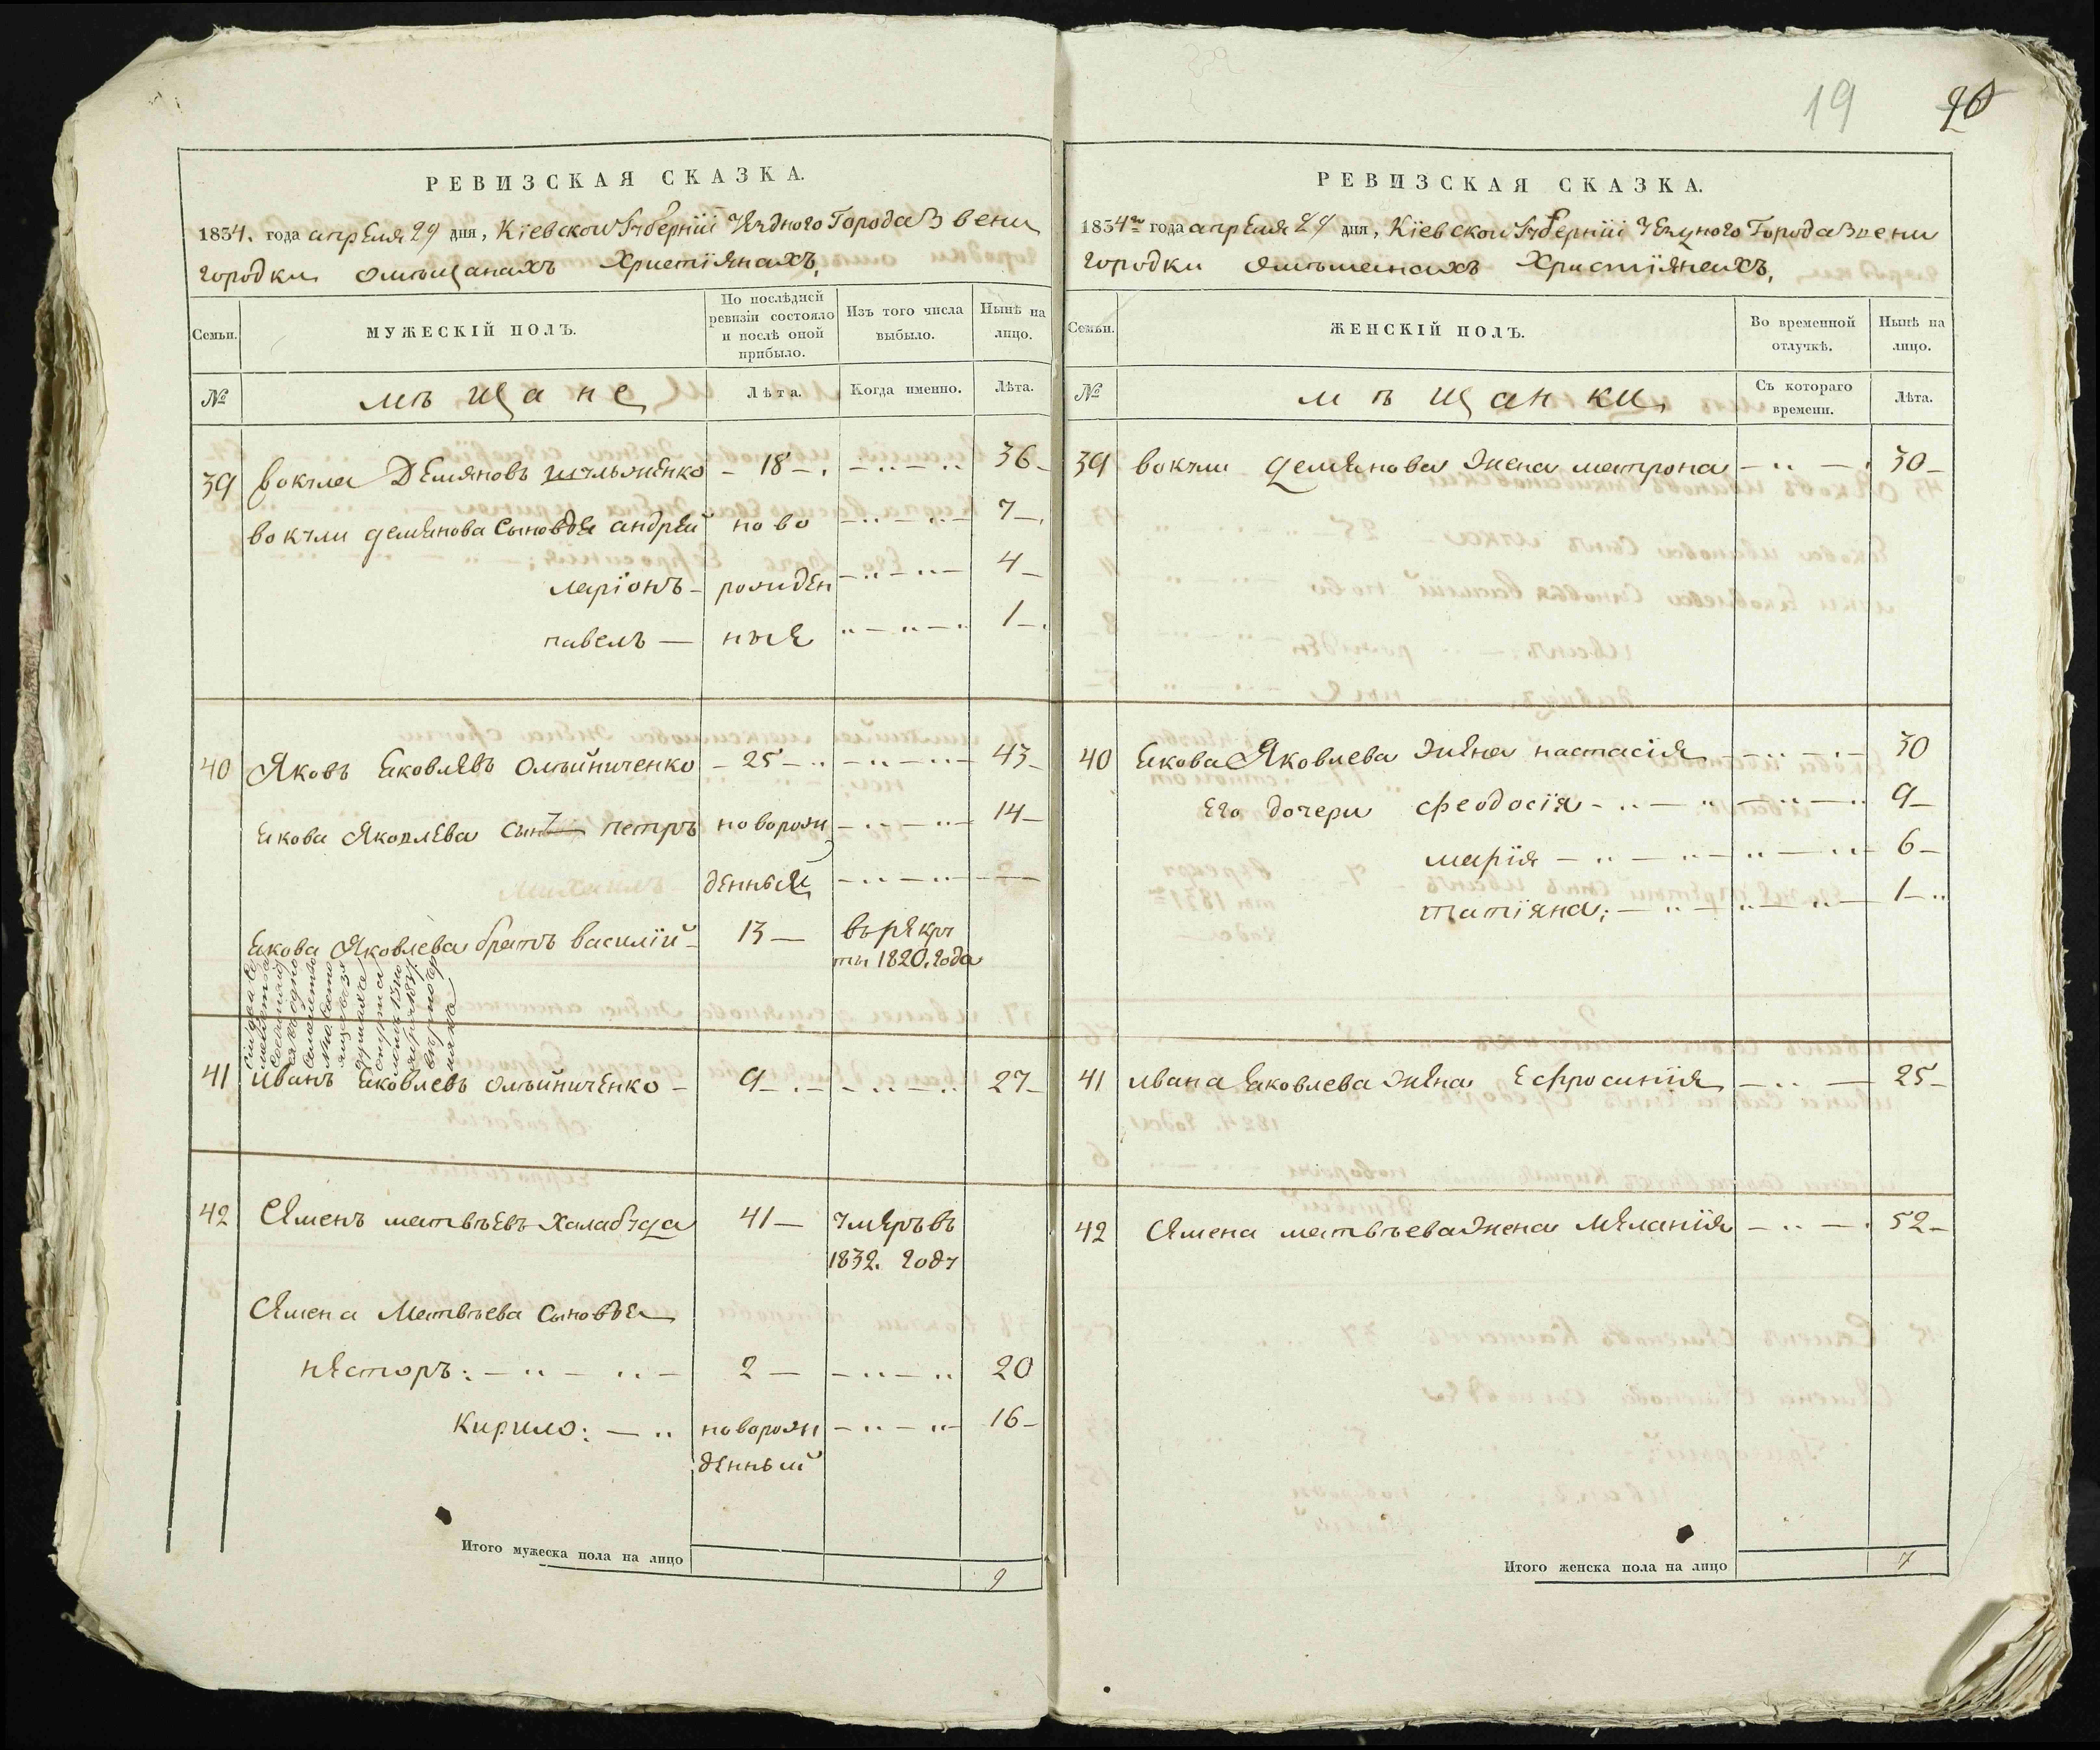 19 20
РЕВИЗСКАЯ СКАЗКА.
1834. года апреля 29 дня, Кіевской Губерніи Уездного Города Звени
городки омѣщанахъ Христіянахъ,
Семьи. МУЖЕСКІЙ ПОЛЪ. По послѣдней ревизіи состояло и послѣ оной прибыло. Изъ того числа выбыло. Нынѣ на лицо.
№ мѣщане Лѣта. Когда именно. Лѣта.
39 вокула Демяновъ - 18 - 36
вокули демянова сыновъя андрей ново 7
ларіонъ рожден 4
павелъ — ные 1
40 Яковъ яковлевъ олѣйниченко - 25 - 43
якова Яковлева сынъ петръ новорож 14
денный
якова Яковлева братъ василій 13 — върекру
ты 1820. года
41 иванъ яковлевъ олѣйниченко - 9 27
42 Семенъ матвѣевъ халабуда 41 — умеръ въ
1832. году
Семена Матвѣева сыновъя
несторъ: 2 — 20
Кирило: новорож 16
денный
Итого мужеска пола на лицо 9
РЕВИЗСКАЯ СКАЗКА.
1834го года апреля 29 дня, Кіевской Губерніи Уезного Города Звени
городки омѣщанахъ Христіянахъ,
Семьи. ЖЕНСКІЙ ПОЛЪ. Во временной отлучкѣ. Нынѣ на лицо.
№ мѣщанки Съ котораго времени. Лѣта.
39 вокули демянова жена матрона 30
40 якова Яковлева жена настасія 30
Его дочери феодосія 9
марія 6
татіяна; 1
41 ивана яковлева жена Ефросинія 25
42 Семена матвѣева жена Меланія 52
Итого женска пола на лицо 7